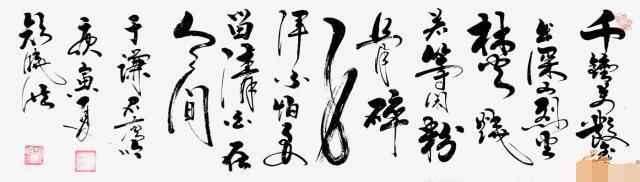 千锤万凿
出深山烈火
焚烧
若等闲粉
骨碎
身
浑不怕要
留清白在
人间
于谦石灰吟
庚寅夏